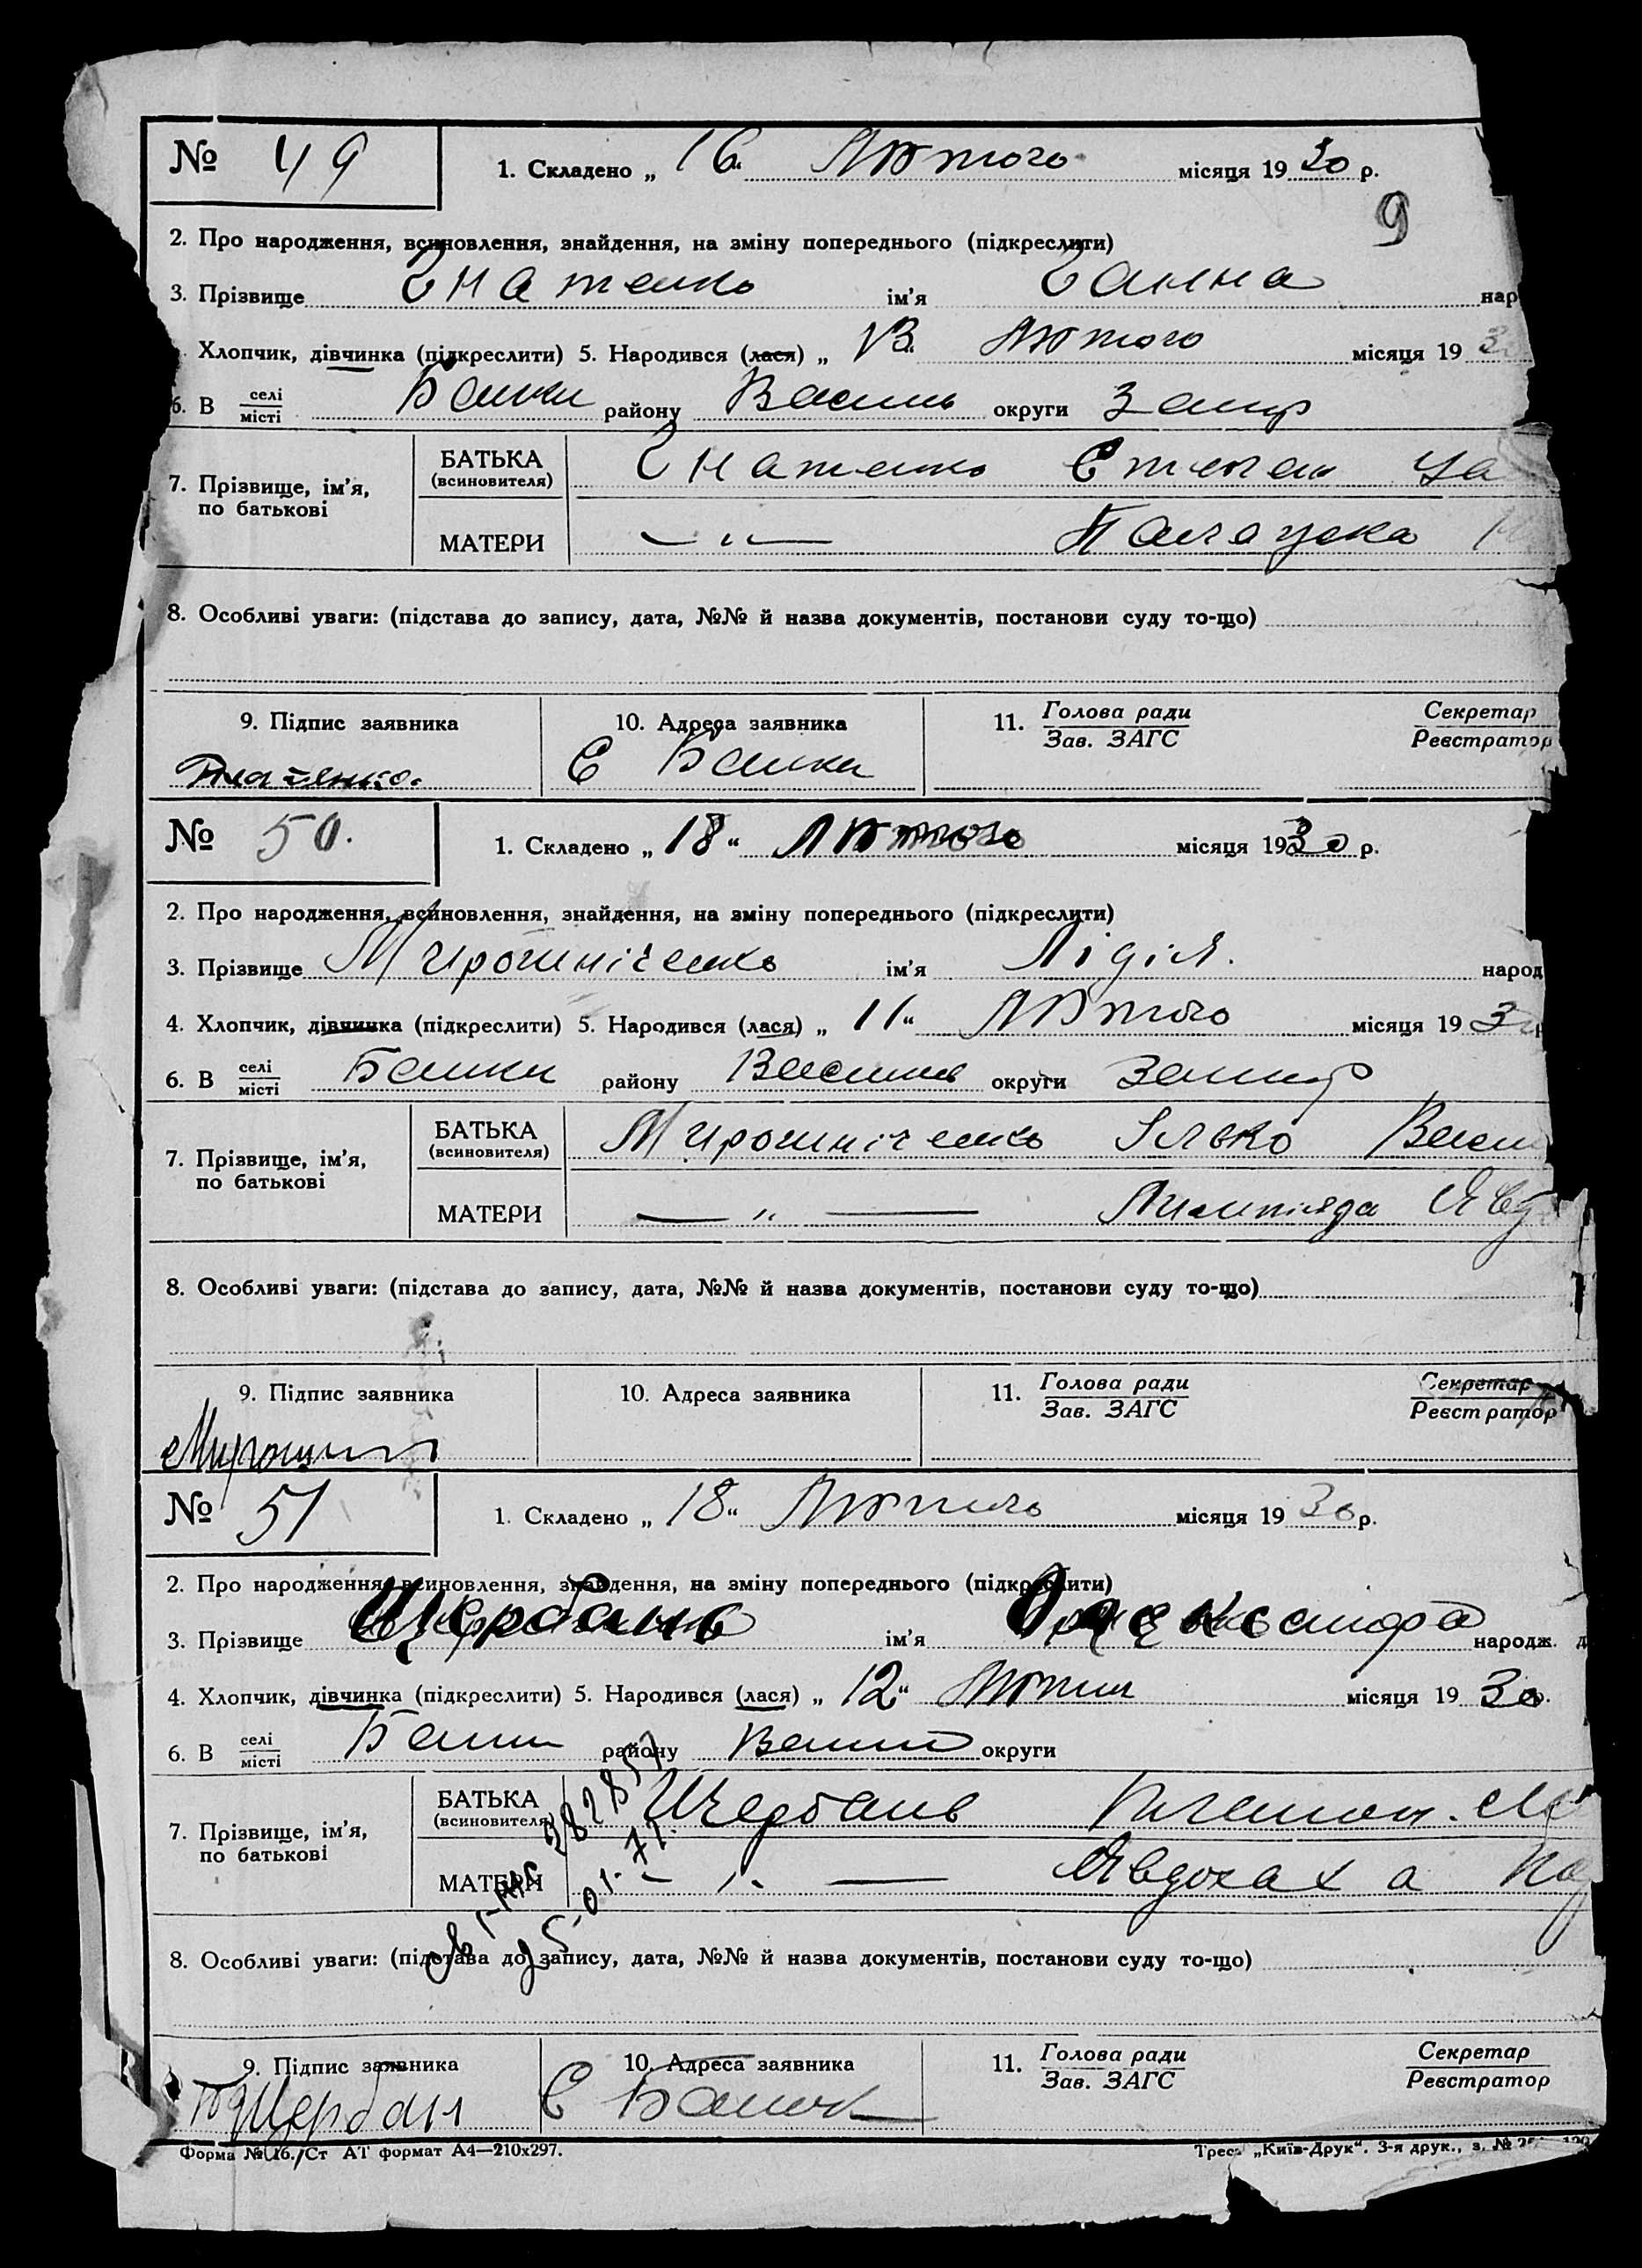 № 49
1. Складено „ 16 “ Лютого місяця 1930 р.
9
2. Про народження, всиновлення, знайдення, на зміну попереднього (підкреслити)
3. Прізвище Гнатенко ім'я Ганна нар
Хлопчик, дівчинка (підкреслити) 5. Народився (лася) „ 13 “ Лютого місяця 19 3
6. В селі/місті Балки району Васил округи Запор
7. Прізвище, ім'я, по батькові
БАТЬКА (всиновителя) Гнатенко Степан
МАТЕРИ — „ — Палажка
8. Особливі уваги: (підстава до запису, дата, №№ й назва документів, постанови суду то-що)
9. Підпис заявника 10. Адреса заявника 11. Голова ради/Зав. ЗАГС Секретар/Реєстратор
Гнатенко. С Балки
№ 50.
1. Складено „ 18 “ Лютого місяця 1930 р.
2. Про народження, всиновлення, знайдення, на зміну попереднього (підкреслити)
3. Прізвище Мирошніченко ім'я Лідія. народ
4. Хлопчик, дівчинка (підкреслити) 5. Народився (лася) „ 11 “ Лютого місяця 19 3
6. В селі/місті Балки району Василів округи Запор
7. Прізвище, ім'я, по батькові
БАТЬКА (всиновителя) Мирошніченко Ілько Васи
МАТЕРИ — „ — Лимпіяда Явд
8. Особливі уваги: (підстава до запису, дата, №№ й назва документів, постанови суду то-що)
9. Підпис заявника 10. Адреса заявника 11. Голова ради/Зав. ЗАГС Секретар/Реєстратор
Мирошнич
№ 51
1. Складено „ 18 “ Лютого місяця 19 30 р.
2. Про народження, всиновлення, знайдення, на зміну попереднього (підкреслити)
3. Прізвище Щербань ім'я Олександра народж. д
4. Хлопчик, дівчинка (підкреслити) 5. Народився (лася) „ 12 “ Лютого місяця 19 30 р.
6. В селі/місті Балки району Васил округи
7. Прізвище, ім'я, по батькові
БАТЬКА (всиновителя) Щербань
МАТЕРИ — „ — Явдоха
св 1-ЖС 282857
25-01-77.
8. Особливі уваги: (підстава до запису, дата, №№ й назва документів, постанови суду то-що)
9. Підпис заявника 10. Адреса заявника 11. Голова ради/Зав. ЗАГС Секретар/Реєстратор
Щербан С Балки
Форма № 16./Ст АТ формат А4—210x297. Трест „Київ-Друк“. 3-я друк., з. №